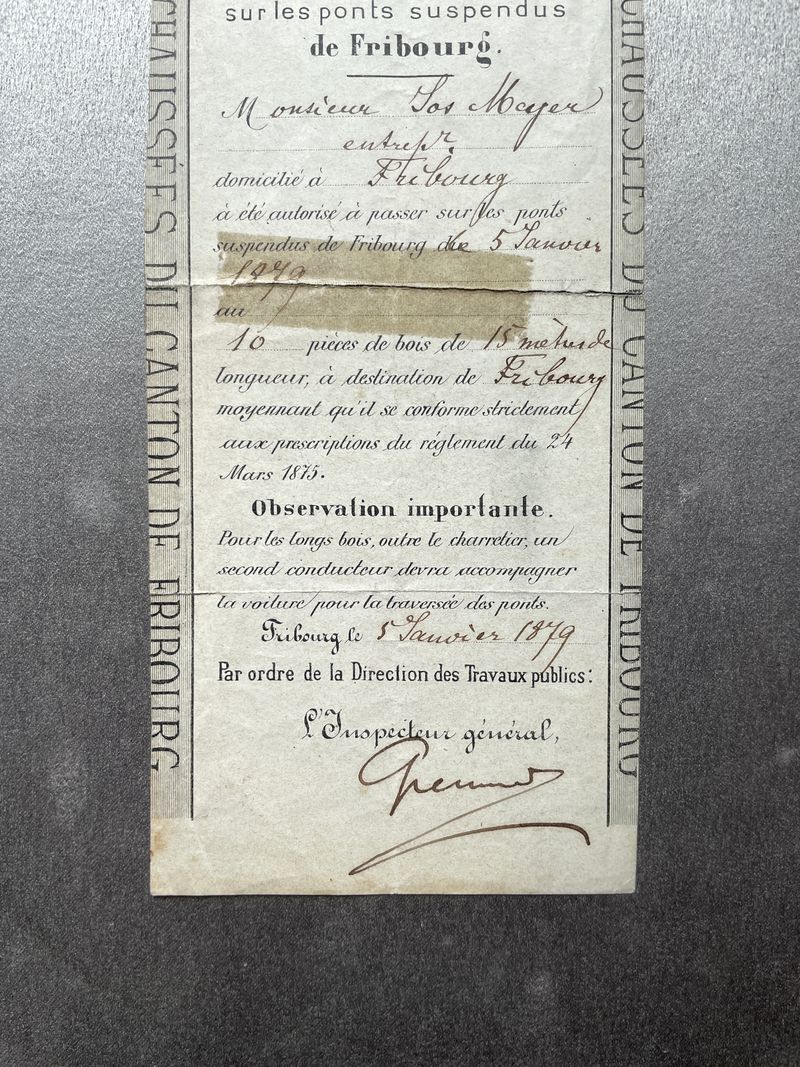 sur les ponts suspendus
de Fribourg.
Monsieur Jos Meyer
entrepr.
domicilié à Fribourg
à été autorisé à passer sur les ponts
suspendus de Fribourg le 5 Janvier
1879
au
10 pièces de bois de 15 mètres de
longueur, à destination de Fribourg
moyennant qu'il se conforme strictement
aux prescriptions du réglement du 24
Mars 1875.
Observation importante.
Pour les longs bois, outre le charretier, un
second conducteur devra accompagner
la voiture pour la traversée des ponts.
Fribourg le 5 Janvier 1879
Par ordre de la Direction des Travaux publics:
L'Inspecteur général,
CHAUSSÉES DU CANTON DE FRIBOURG
CHAUSSÉES DU CANTON DE FRIBOURG